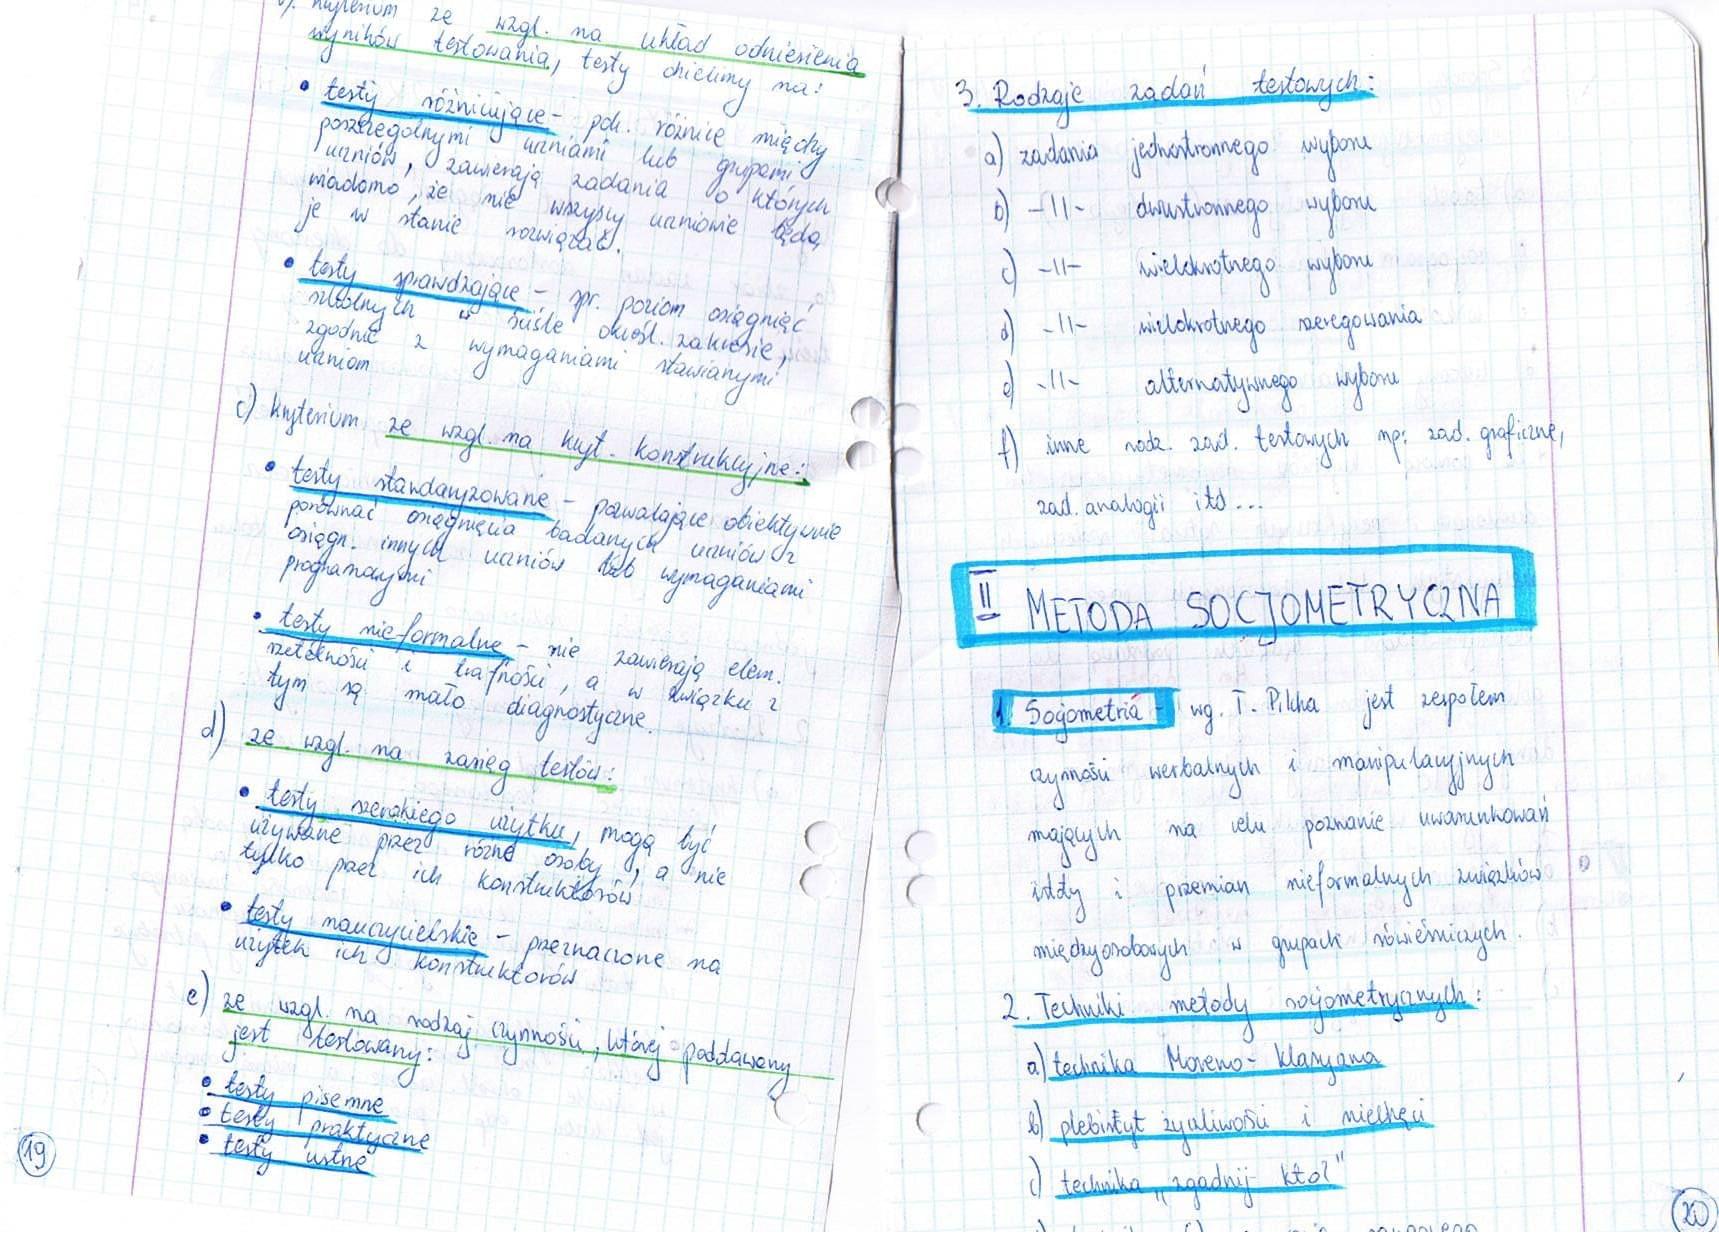 b). kryterium ze wzgl. na układ odniesienia
wyników testowania, testy dzielimy na:
• testy różnicujące - pok. różnice między
poszczególnymi uczniami lub grupami
uczniów, zawierają zadania o których
wiadomo, że nie wszyscy uczniowie będą
je w stanie rozwiązać.
• testy sprawdzające - spr. poziom osiągnięć
szkolnych w ściśle określ. zakresie,
zgodnie z wymaganiami stawianymi
uczniom
c) kryterium ze wzgl. na kryt. konstrukcyjne:
• testy standaryzowane - pozwalające obiektywnie
porównać osiągnięcia badanych uczniów z
osiągn. innych uczniów lub wymaganiami
programowymi
• testy nieformalne - nie zawierają elem.
rzetelności i trafności, a w związku z
tym są mało diagnostyczne.
d) ze wzgl. na zasięg testów:
• testy szerokiego użytku, mogą być
używane przez różne osoby, a nie
tylko przez ich konstruktorów
• testy nauczycielskie - przeznaczone na
użytek ich konstruktorów
e) ze wzgl. na rodzaj czynności, której poddawany
jest testowany:
• testy pisemne
• testy praktyczne
• testy ustne
19
3. Rodzaje zadań testowych:
a) zadania jednostronnego wyboru
b) -||- dwustronnego wyboru
c) -||- wielokrotnego wyboru
d) -||- wielokrotnego szeregowania
e) -||- alternatywnego wyboru
f) inne rodz. zad. testowych np: zad. graficzne,
zad. analogii itd...
II METODA SOCJOMETRYCZNA
1. Socjometria - wg. T. Pilcha jest zespołem
czynności werbalnych i manipulacyjnych
mających na celu poznanie uwarunkowań
istoty i przemian nieformalnych związków
międzyosobowych w grupach rówieśniczych.
2. Techniki metody socjometrycznych:
a) technika Moreno - klasyczna
b) plebiscyt życzliwości i niechęci
c) technika „zgadnij kto?"
20